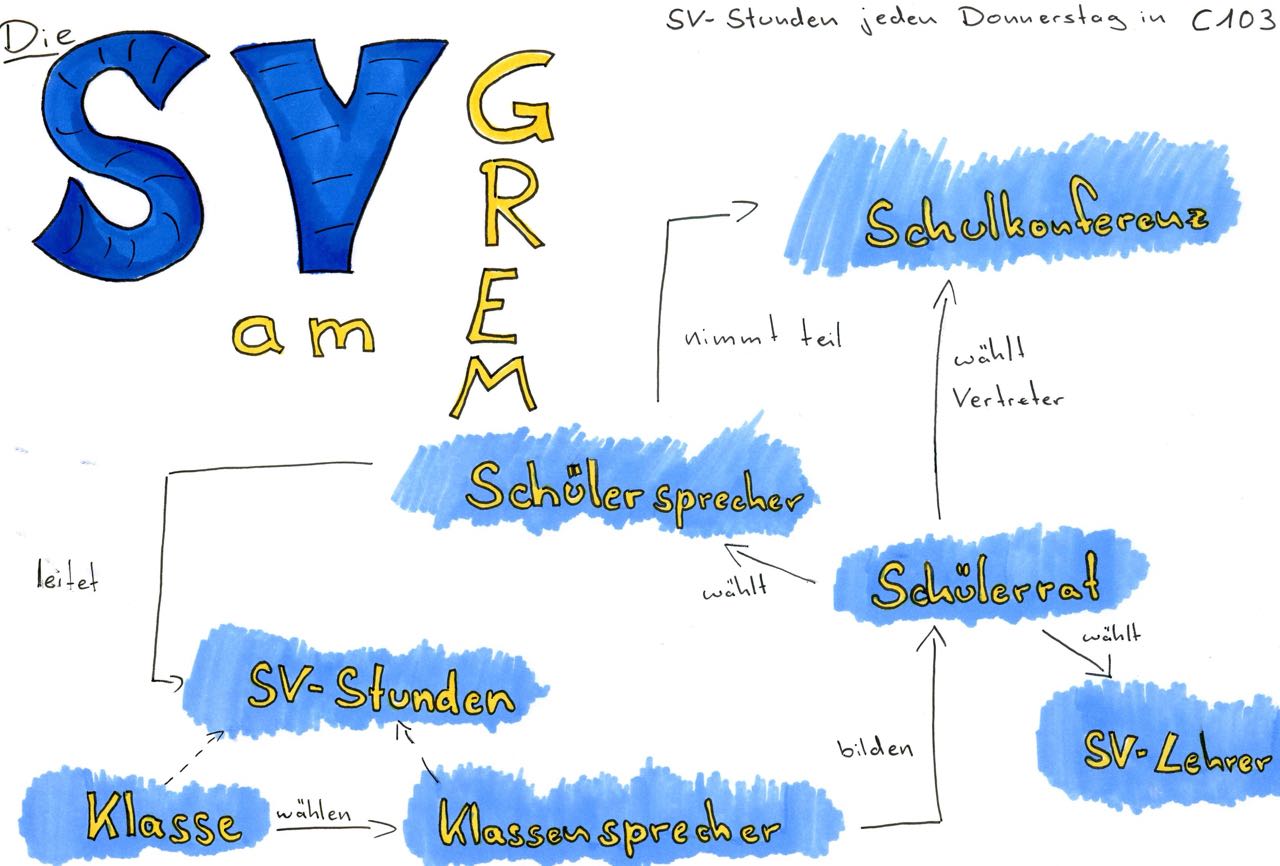 Die
SV
am
GREM
SV-Stunden jeden Donnerstag in C103
Schulkonferenz
nimmt teil
wählt
Vertreter
Schülersprecher
leitet
wählt
Schülerrat
wählt
SV-Stunden
SV-Lehrer
bilden
Klasse
wählen
Klassensprecher